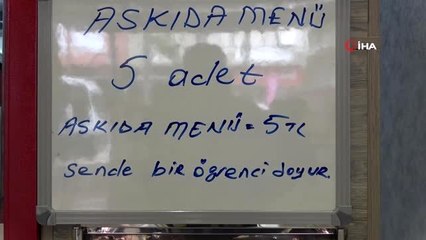 ASKIDA MENÜ
İHA
5 adet
ASKIDA MENÜ = 5 TL
sende bir öğrenci doyur.